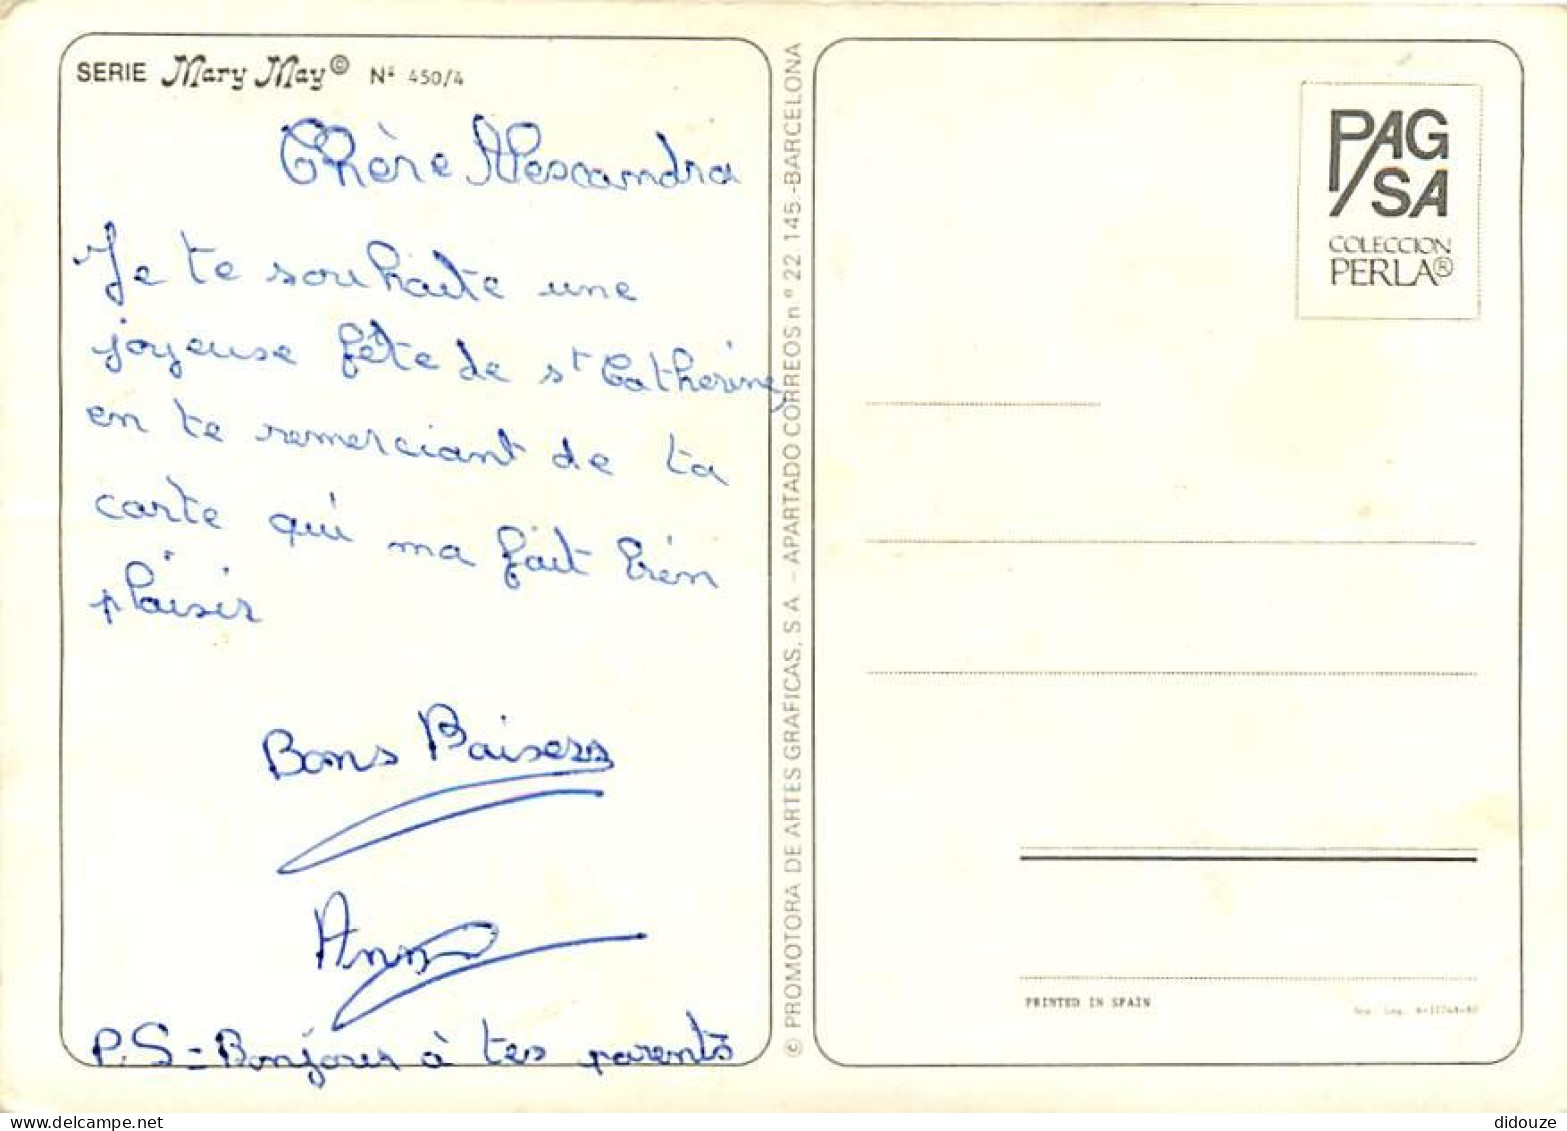 SERIE Mary May © Nº 450/4
Chère Alescandra
Je te souhaite une
joyeuse fête de st Catherine,
en te remerciant de ta
carte qui ma fait bien
plaisir
Bons Baisers
Ann
P.S = Bonjour à tes parents
© PROMOTORA DE ARTES GRAFICAS, S.A. - APARTADO CORREOS n.º 22.145.-BARCELONA
PAG
SA
COLECCION
PERLA®
PRINTED IN SPAIN
didouze